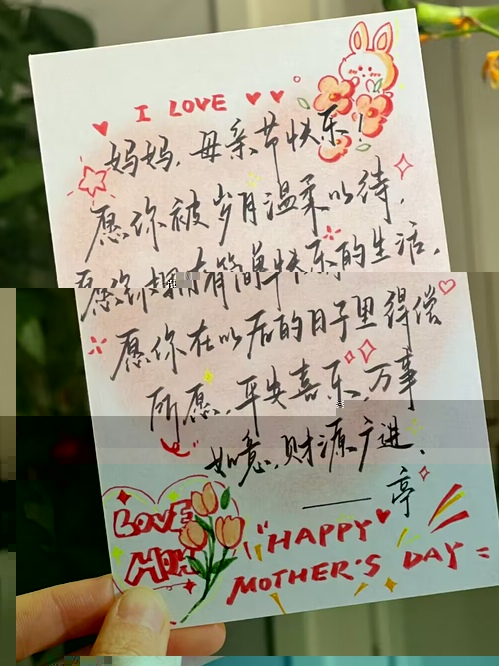 I LOVE
妈妈,母亲节快乐!
愿你被岁月温柔以待,
愿你拥有简单快乐的生活,
愿你在以后的日子里得偿
所愿,平安喜乐,万事
如意,财源广进.
——亭
LOVE
MOM
"HAPPY
MOTHER'S DAY"